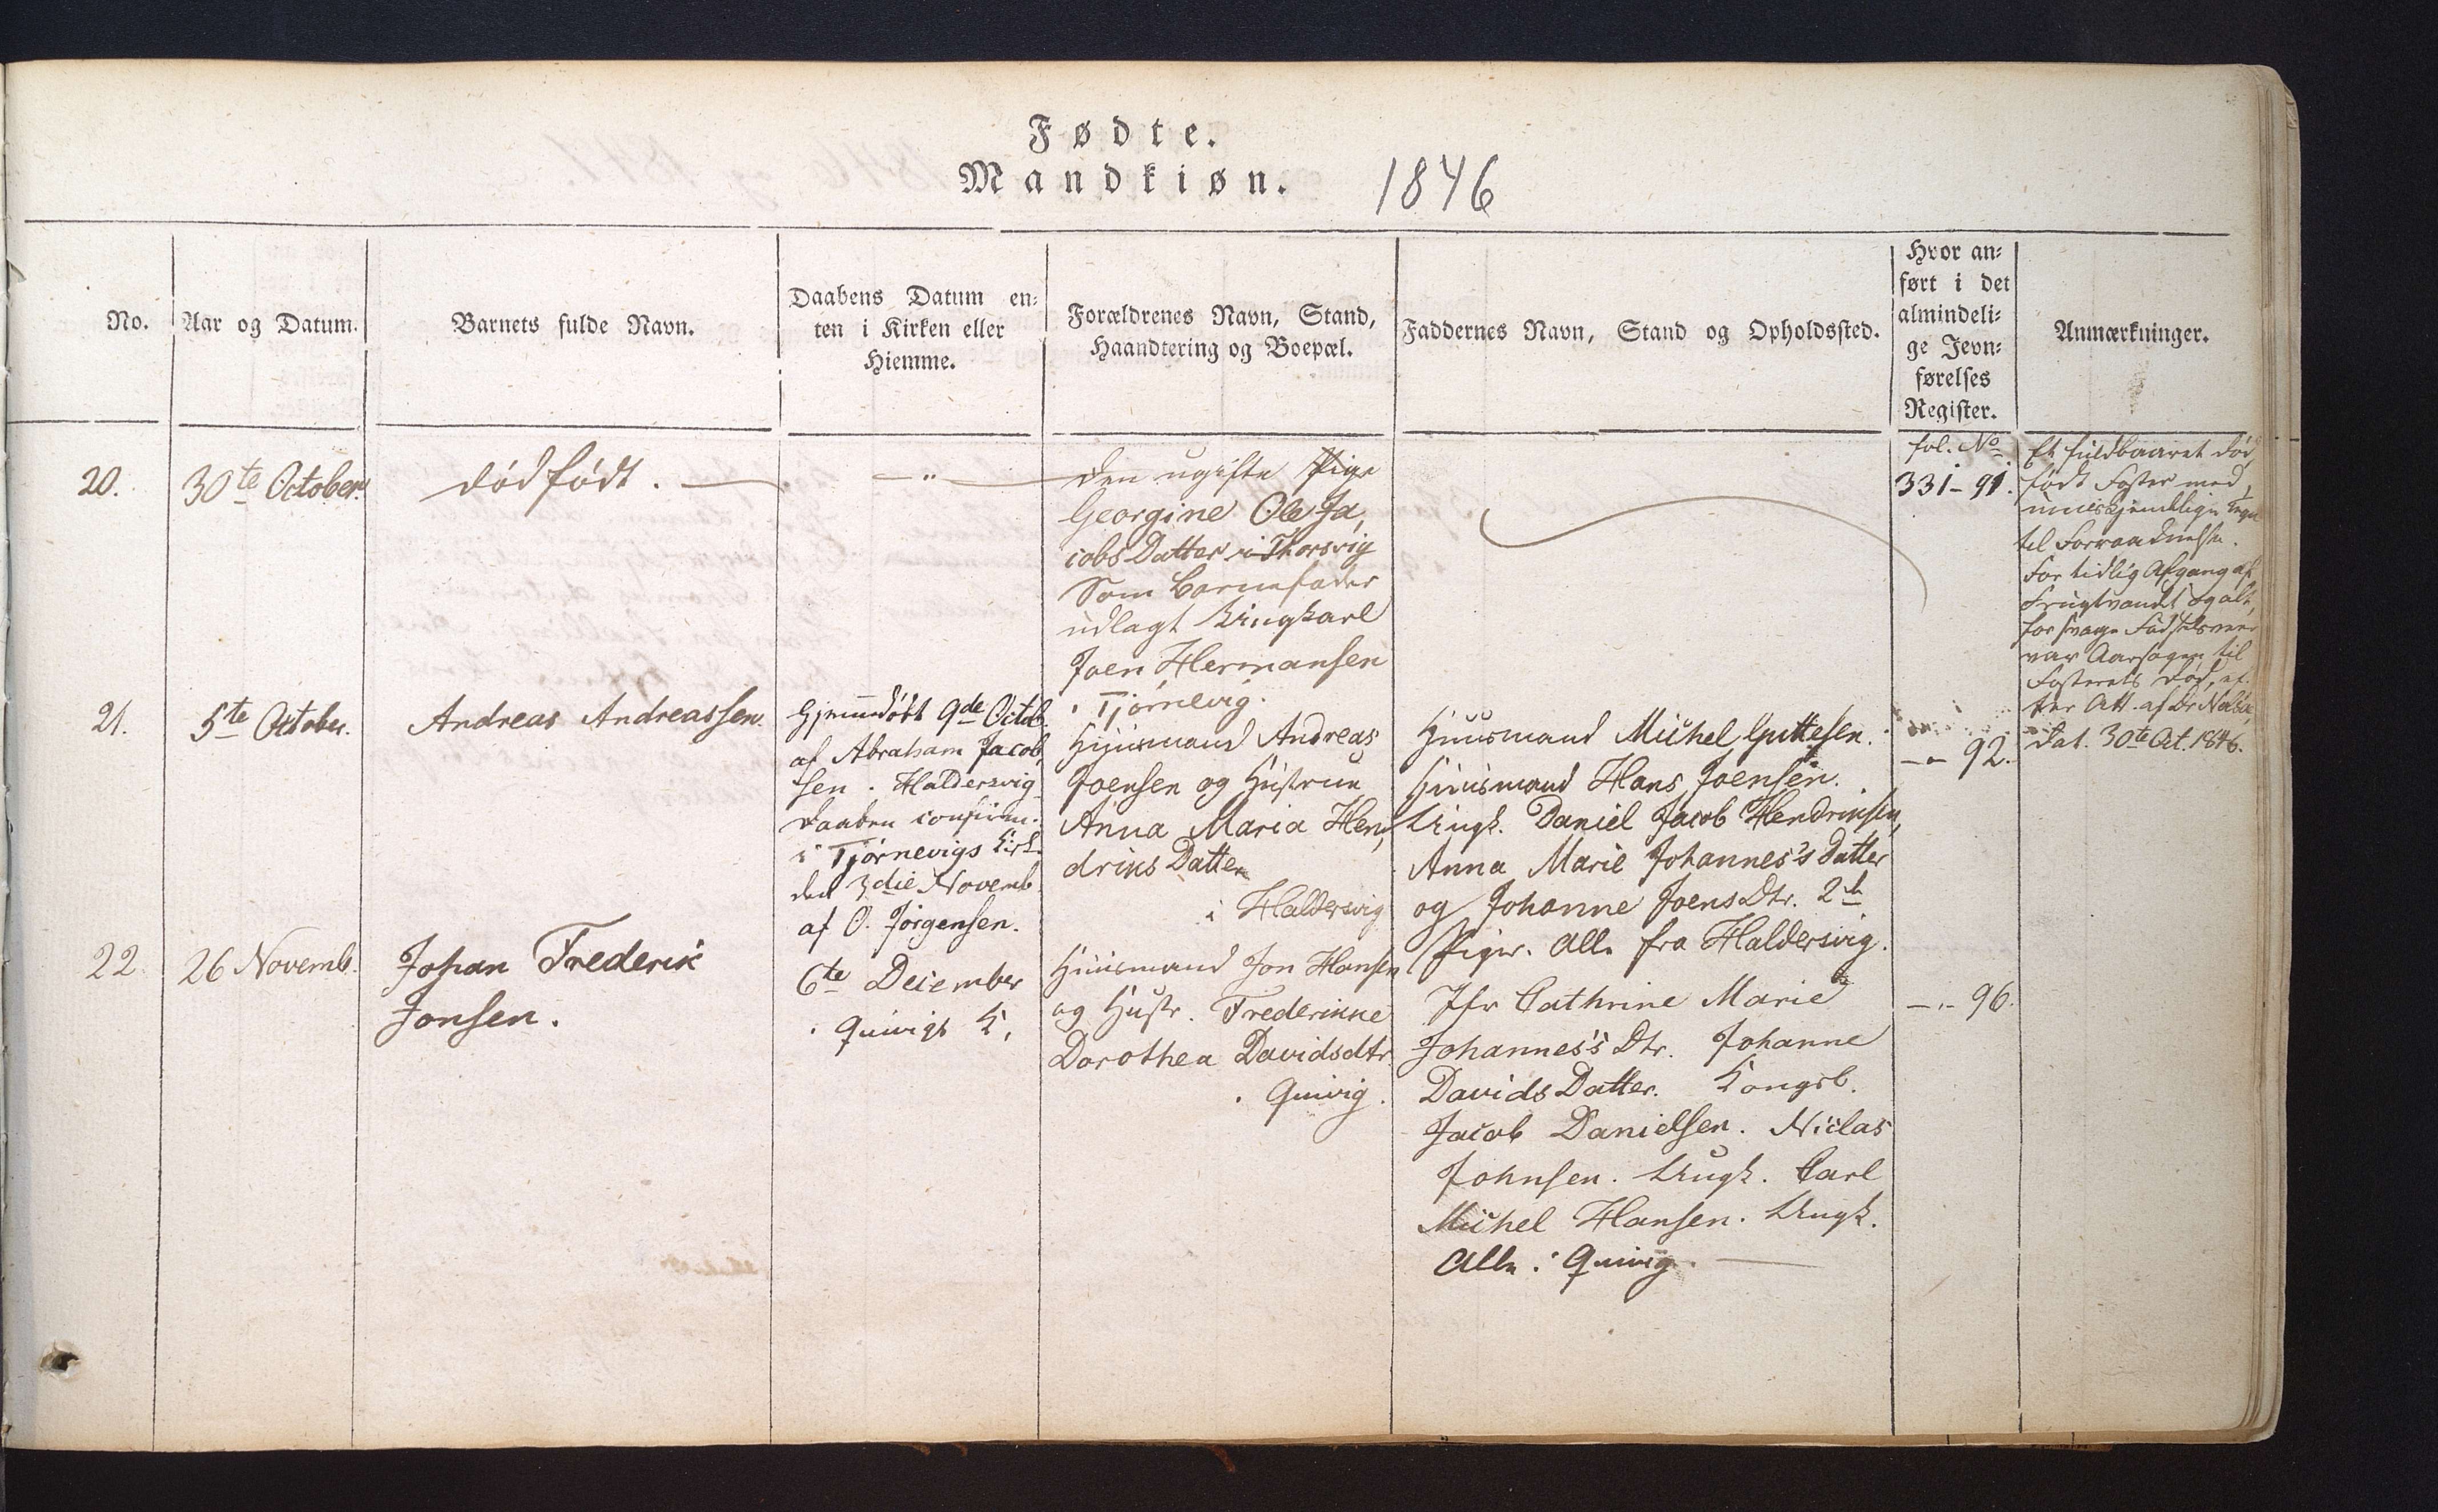 Fødte.
Mandkiøn. 1846
No.
Aar og Datum.
Barnets fulde Navn.
Daabens Datum en-
ten i Kirken eller
Hiemme.
Forældrenes Navn, Stand,
Haandtering og Boepæl.
Faddernes Navn, Stand og Opholdssted.
Hvor an-
ført i det
almindeli-
ge Jevn-
førelses
Register.
Anmærkninger.
20.
30te October.
dødfødt. —
— " —
den ugifte Pige
Georgine Ole Ja,
cobs Datter i Thorsvig
Som Barnefader
udlagt Ungkarl
Joen Hermansen
i Tjørnevig.
fol. No.
331 - 91.
Et fuldbaaret død,
født Foster med,
umiskjendelige Tegn
til Forraadnelse.
For tidlig Afgang af
Frugtvandet og alt,
for svage Fødselsveer
var Aarsagen til
Fosterets Død, ef,
ter Att. af Dr
dat. 30te Oct. 1846.
21.
5te October.
Andreas Andreassen.
Hjemmedøbt 9de Octob.
af Abraham Jacob,
sen i Haldersvig
Daaben confirm.
i Tjørnevigs Kirk.
den 3die Novemb.
af O. Jørgensen.
Huusmand Andreas
Joensen og Hustrue
Anna Maria Hen,
driks Datter
i Haldersvig
Huusmand Michel Guttesen.
Huusmand Hans Joensen.
Ungk. Daniel Jacob Hendriksen,
Anna Marie Johannes's Datter
og Johanne Joens Dtr. 2de
Piger. Alle fra Haldersvig.
— " — 92.
22.
26 Novemb.
Johan Frederik
Jonsen.
6te December
i Quivigs K.
Huusmand Jon Hansen
og Hustr. Frederikke
Dorothea Davidsdtr.
i Quivig.
Jfr Cathrine Marie
Johannes's Dtr. Johanne
Davids Datter. Kongsb.
Jacob Danielsen. Niclas
Johnsen. Ungk. Carl
Michel Hansen. Ungk.
Alle i Quivig. —
— " — 96.